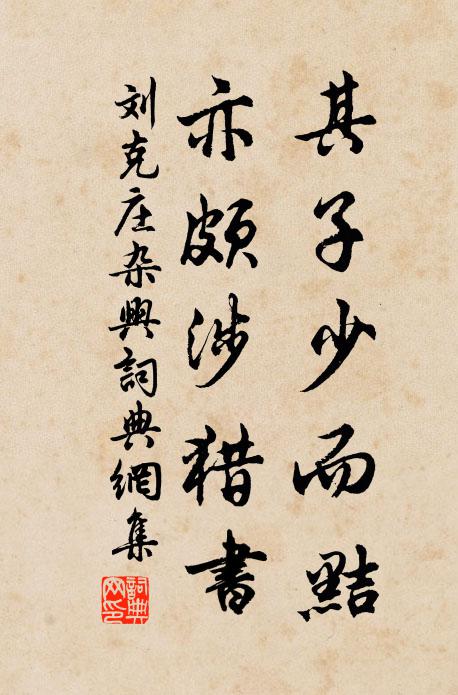 其子少而黠
亦頗涉猎書
刘克庄杂興詞典網集
詞典网印